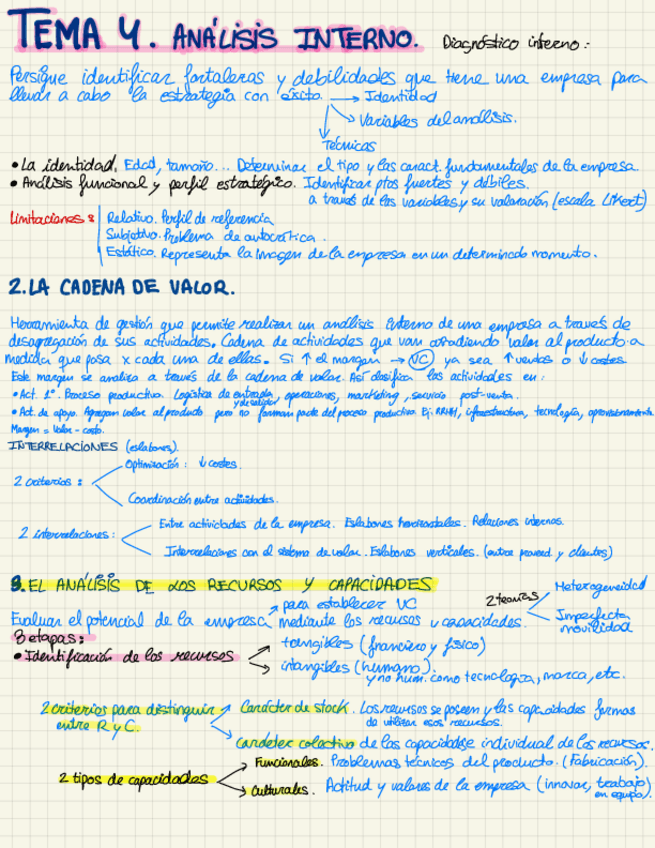 TEMA 4. ANÁLISIS INTERNO. Diagnóstico interno:
Persigue identificar fortalezas y debilidades que tiene una empresa para
llevar a cabo la estrategia con éxito. → Identidad
→ Variables del análisis.
Técnicas
• La identidad. Edad, tamaño... Determinar el tipo y las caract. fundamentales de la empresa
• Análisis funcional y perfil estratégico. Identificar ptos fuertes y débiles.
a través de las variables y su valoración (escala Likert)
Limitaciones: Relativo. Perfil de referencia
Subjetivo. Problema de autocrítica.
Estático. Representa la imagen de la empresa en un determinado momento.
2. LA CADENA DE VALOR.
Herramienta de gestión que permite realizar un análisis interno de una empresa a través de
desagregación de sus actividades. Cadena de actividades que van añadiendo valor al producto a
medida que pasa x cada una de ellas. Si ↑ el margen → VC ya sea ↑ ventas o ↓ costes
Este margen se analiza a través de la cadena de valor. Así clasifica las actividades en:
• Act. 1ª. Proceso productivo. Logística de entrada y de salida, operaciones, marketing, servicio post-venta.
• Act. de apoyo. Agregan valor al producto pero no forman parte del proceso productivo. Ej: RRHH, infraestructura, tecnología, aprovisionamiento.
Margen = Valor - coste.
INTERRELACIONES (eslabones).
2 criterios: Optimización: ↓ costes.
Coordinación entre actividades.
2 interrelaciones: Entre actividades de la empresa. Eslabones horizontales. Relaciones internas.
Interrelaciones con el sistema de valor. Eslabones verticales. (entre proveed. y clientes)
3. EL ANÁLISIS DE LOS RECURSOS Y CAPACIDADES
→ para establecer VC 2 teorías Heterogeneidad
Imperfecta movilidad
Evaluar el potencial de la empresa mediante los recursos y capacidades.
3 etapas:
• Identificación de los recursos → tangibles (financiero y físico)
→ intangibles (humano).
y no hum. como tecnología, marca, etc.
2 criterios para distinguir entre R y C. → Carácter de stock. Los recursos se poseen y las capacidades formas
de utilizar esos recursos.
→ carácter colectivo de las capacidades e individual de los recursos.
2 tipos de capacidades → Funcionales. Problemas técnicos del producto. (Fabricación).
→ Culturales. Actitud y valores de la empresa (innovar, trabajo en equipo).